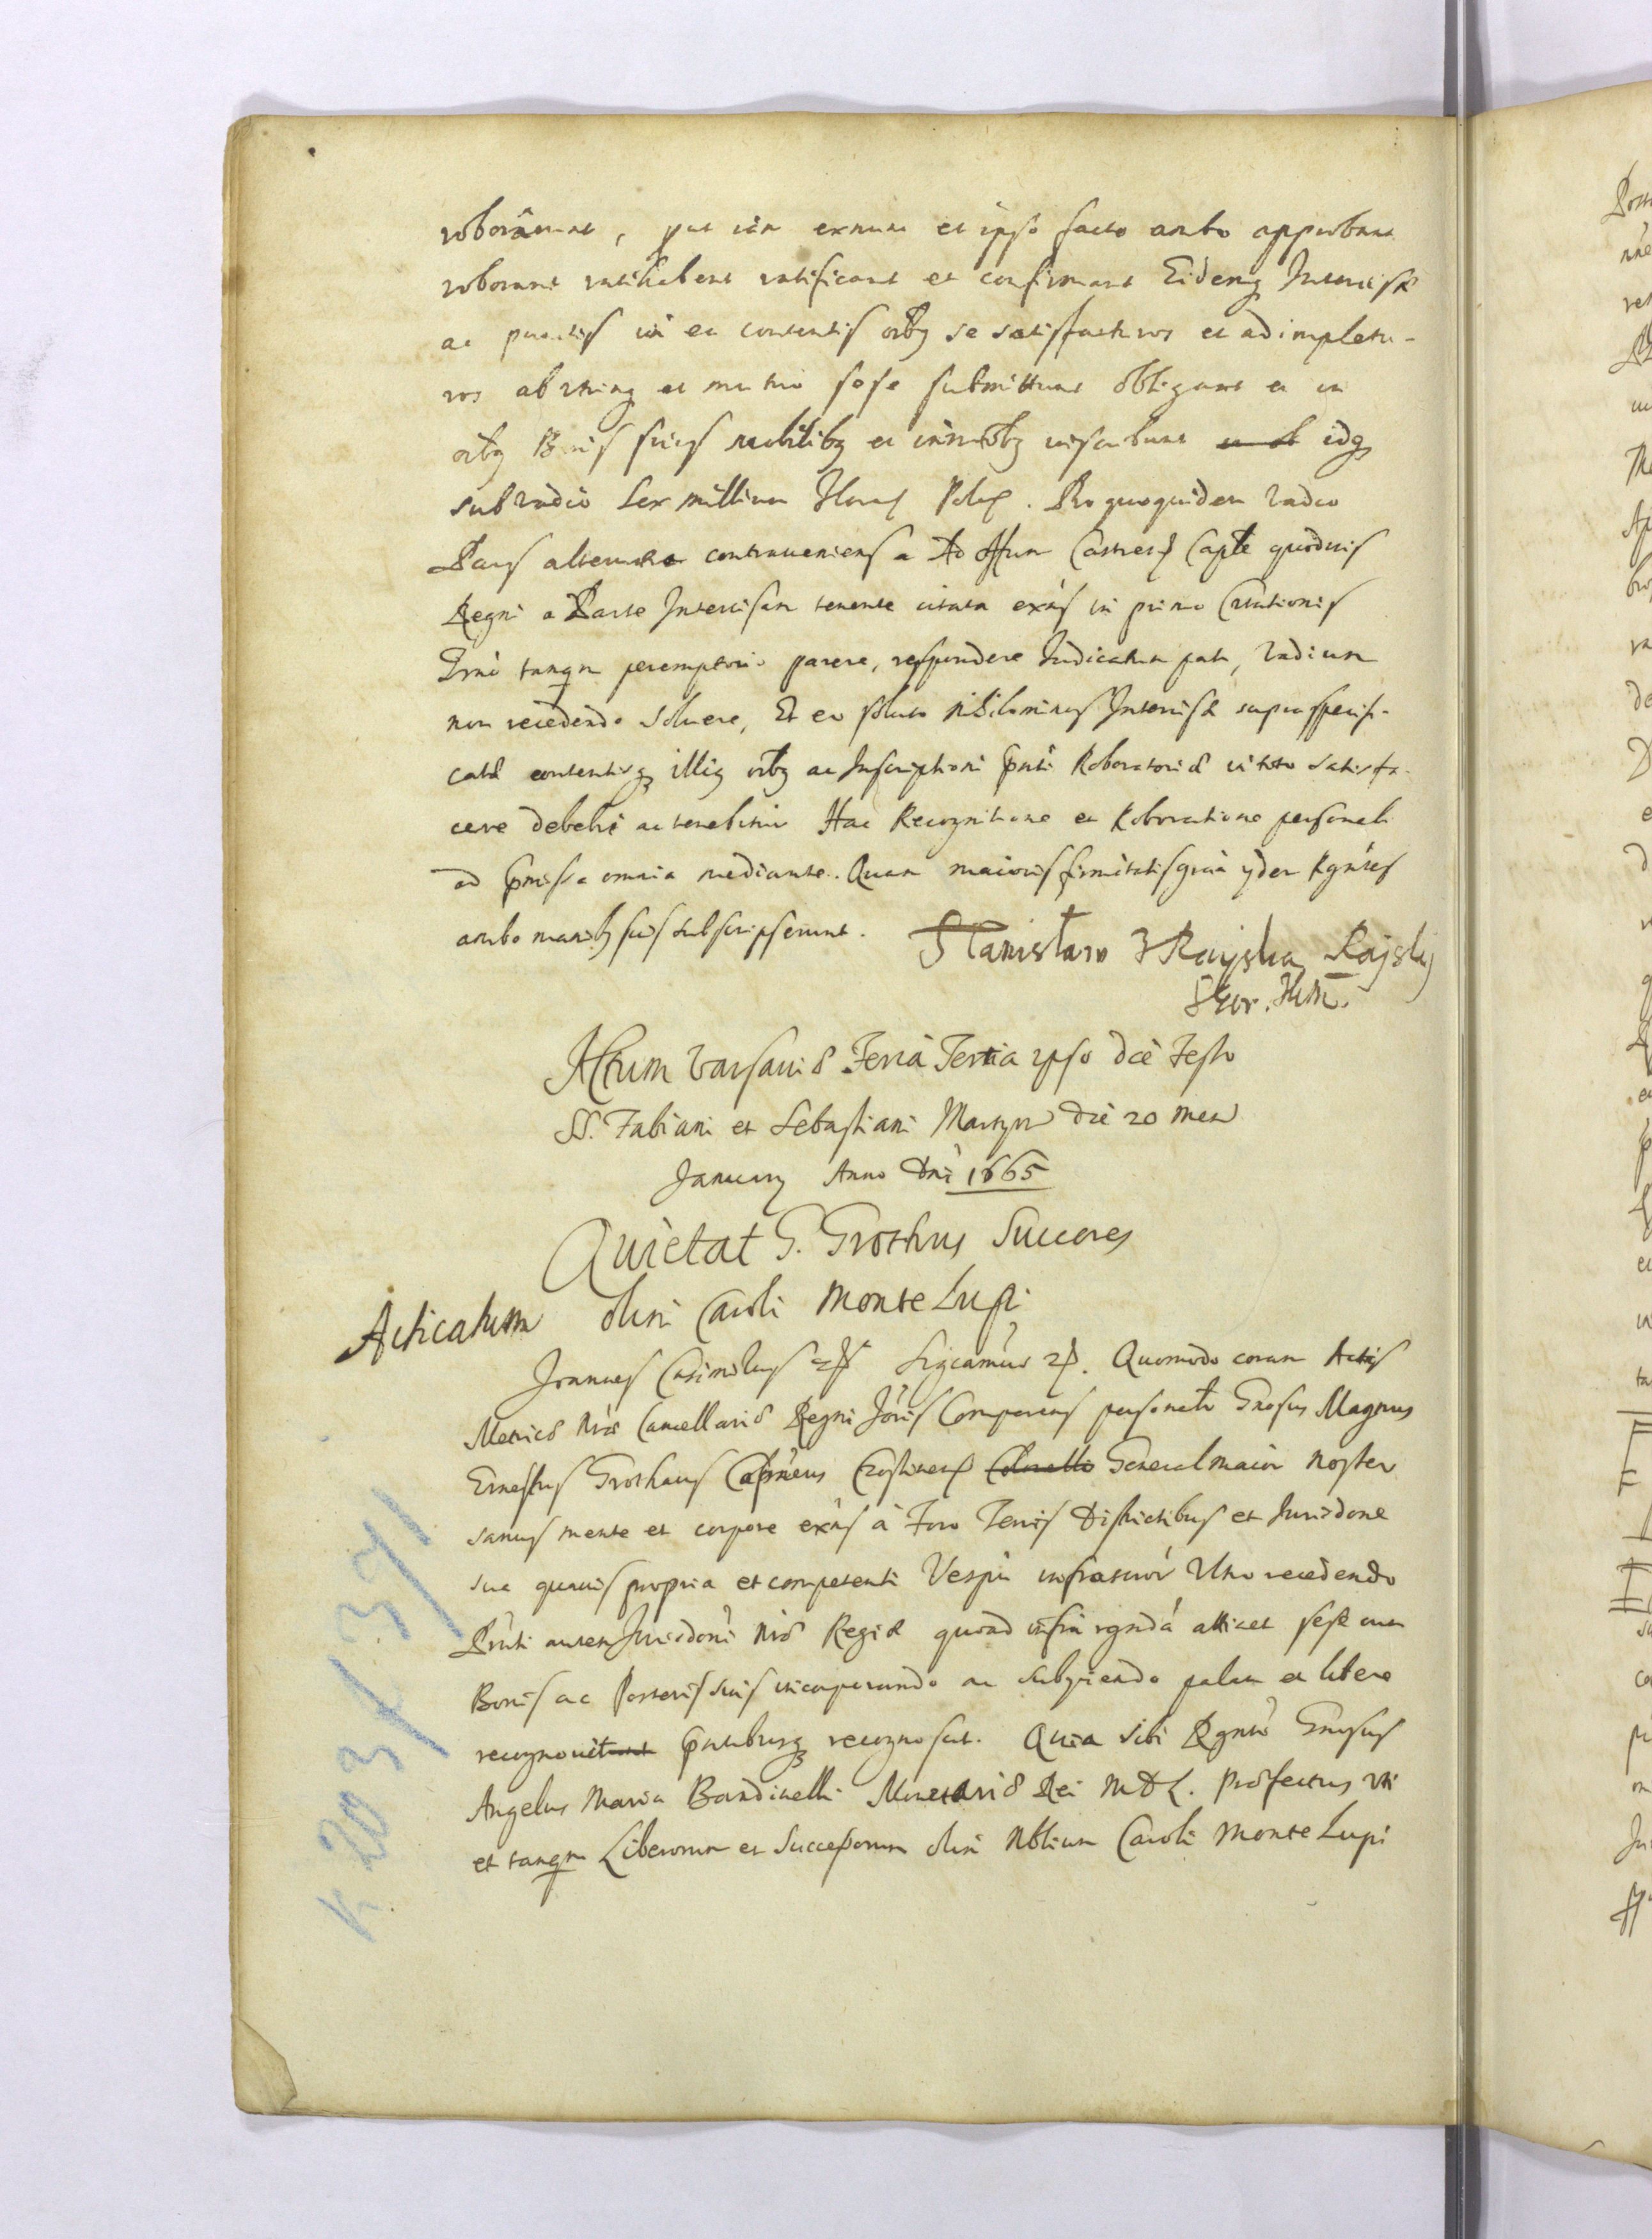 roborârunt, put ità exnunc et ipso facto ambo approbant
roborant ratihabent ratificant et confirmant Eidemq Intercisæ
ac punctis in ea contentis oibq se satisfacturos et adimpletu-
ros ab utrinq et mutuo sese submittunt obligant et in
oibq Bonis suis mobilibq et immobq inscribunt idq
sub vadio Sex millium Floren Polcl. Pro quoquidem vadio
Pars alterutra contraueniens a Ad Offum Castren Capte quoduis
Regni a Parte Intercisam tenente citata exñs in primo Citationis
Trno tanqm peremptorio parere, respondere Iudicatum pati, Vadium
non recedendo soluere, Et eo soluto nihilominus Intercisæ supraspecifi-
catæ contentisq illiq oibq ac Inscriptioni pnti Roboratoriæ in toto satisfa-
cere debebit ac tenebitur Hac Recognitione et Roboratione personali
ad pmissa omnia mediante. Quam maioris firmitatis gratia ijdem Rgntes
ambo manibq suis subscripserunt. Stanisław z Rayska Rajski
Actum Varsauiæ Feria Tertia ipso die Festo
SS. Fabiani et Sebastiani Martyr die 20 Men
January Anno Dni 1665
Quietat G. Grothus Succores
Acticatum olim Caroli Monte Lupi
Joannes Casimirus etc Significamus etc. Quomodo coram Actis
Metrices Nræ Cancellariæ Regni Joris Comparens personaliter Grosus Magnus
Ernestus Grothaus Capneus Crostinen Colonello Generalmaior noster
sanus mente et corpore exñs à Foro Terris Districtibus et Jurisdone
sua quauis propria et competenti Respu infrascrior Vtro recedendo
Pnti autem Jurisdoni Nræ Regiæ quoad infra rgnda attinet sese cum
Bonis ac Posteris suis incorporando ac subijciendo palam et libere
recognouit pntibusq recognoscit. Quia sibi Rgnti Gnosus
Angelus Maria Bandinelli Monetariæ Rei M D L. Præfectus uti
et tanqm Liberorum et Successorum olim Nobilium Caroli Monte Lupi